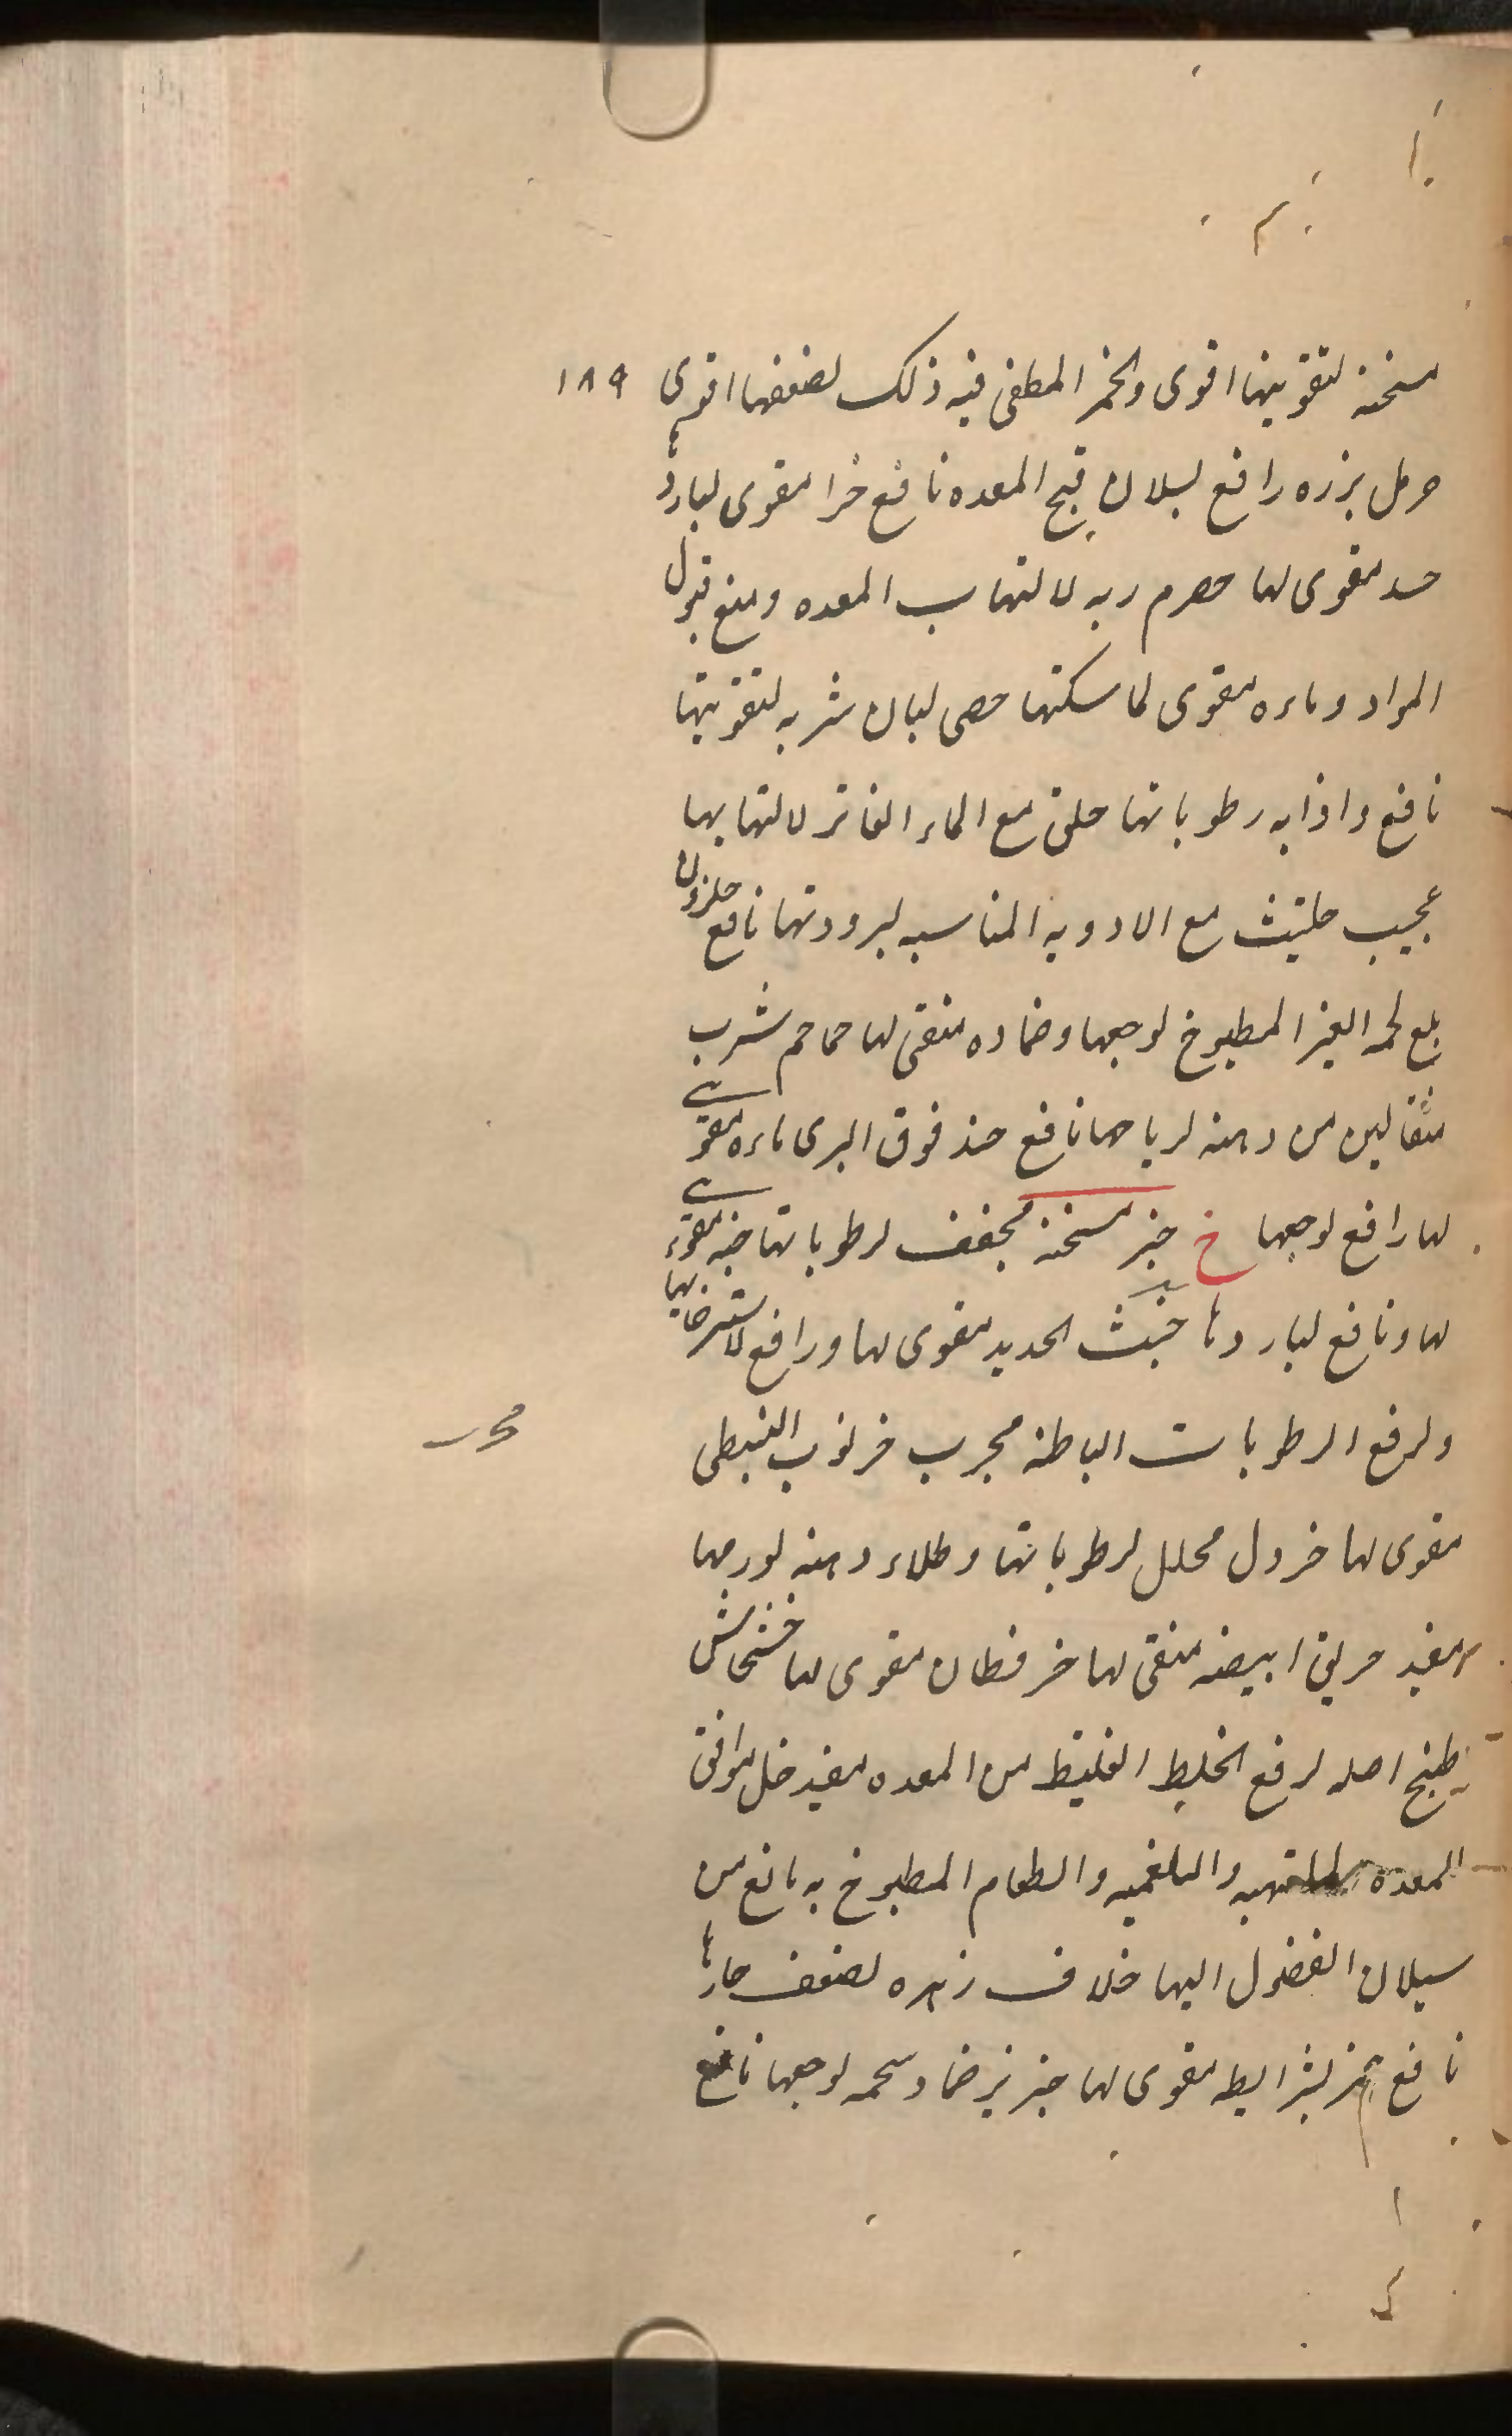 مسخنة لتقويتها اقوى والخمر المطفى فيه ذلك لضعفها اقوى ١٨٩
حرمل بزره رافع لسيلان قيح المعده نافع خرا مقوى لباردها
مقوى لها حصرم ربه لالتهاب المعده ومنع قبول
المواد وماءه مقوى لماسكتها حصى لبان شربه لتقويتها
نافع واذابه رطوباتها مع الماء الفاتر لالتهابها
عجيب حلتيث مع الادويه المناسبه لبرودتها نافع حلزون
بلع لحمه الغير المطبوخ لوجعها وضماده منقى لها حماحم شرب
مثقالين من دهنه لرياحها نافع حندقوق البرى ماءه مقوى
لها رافع لوجعها خ خبز مسخنة مجفف لرطوباتها مقوى
لها ونافع لباردها خبث الحديد مقوى لها ورافع لاسترخائها
ولرفع الرطوبات الباطنة مجرب خرنوب النبطى
مقوى لها خردل محلل لرطوباتها وطلاء دهنه لورمها
مفيد خربق ابيضه منقى لها مقوى لها خشخاش
طبخ اصله لرفع الخليط الغليظ من المعده مفيد خل موافق
المعده الملتهبه والبلغميه والطعام المطبوخ به مانع من
سيلان الفضول اليها خلاف زهره لضعف حارها
نافع خمر بشرايطه مقوى لها خنزير ضماد شحمه لوجعها نافع